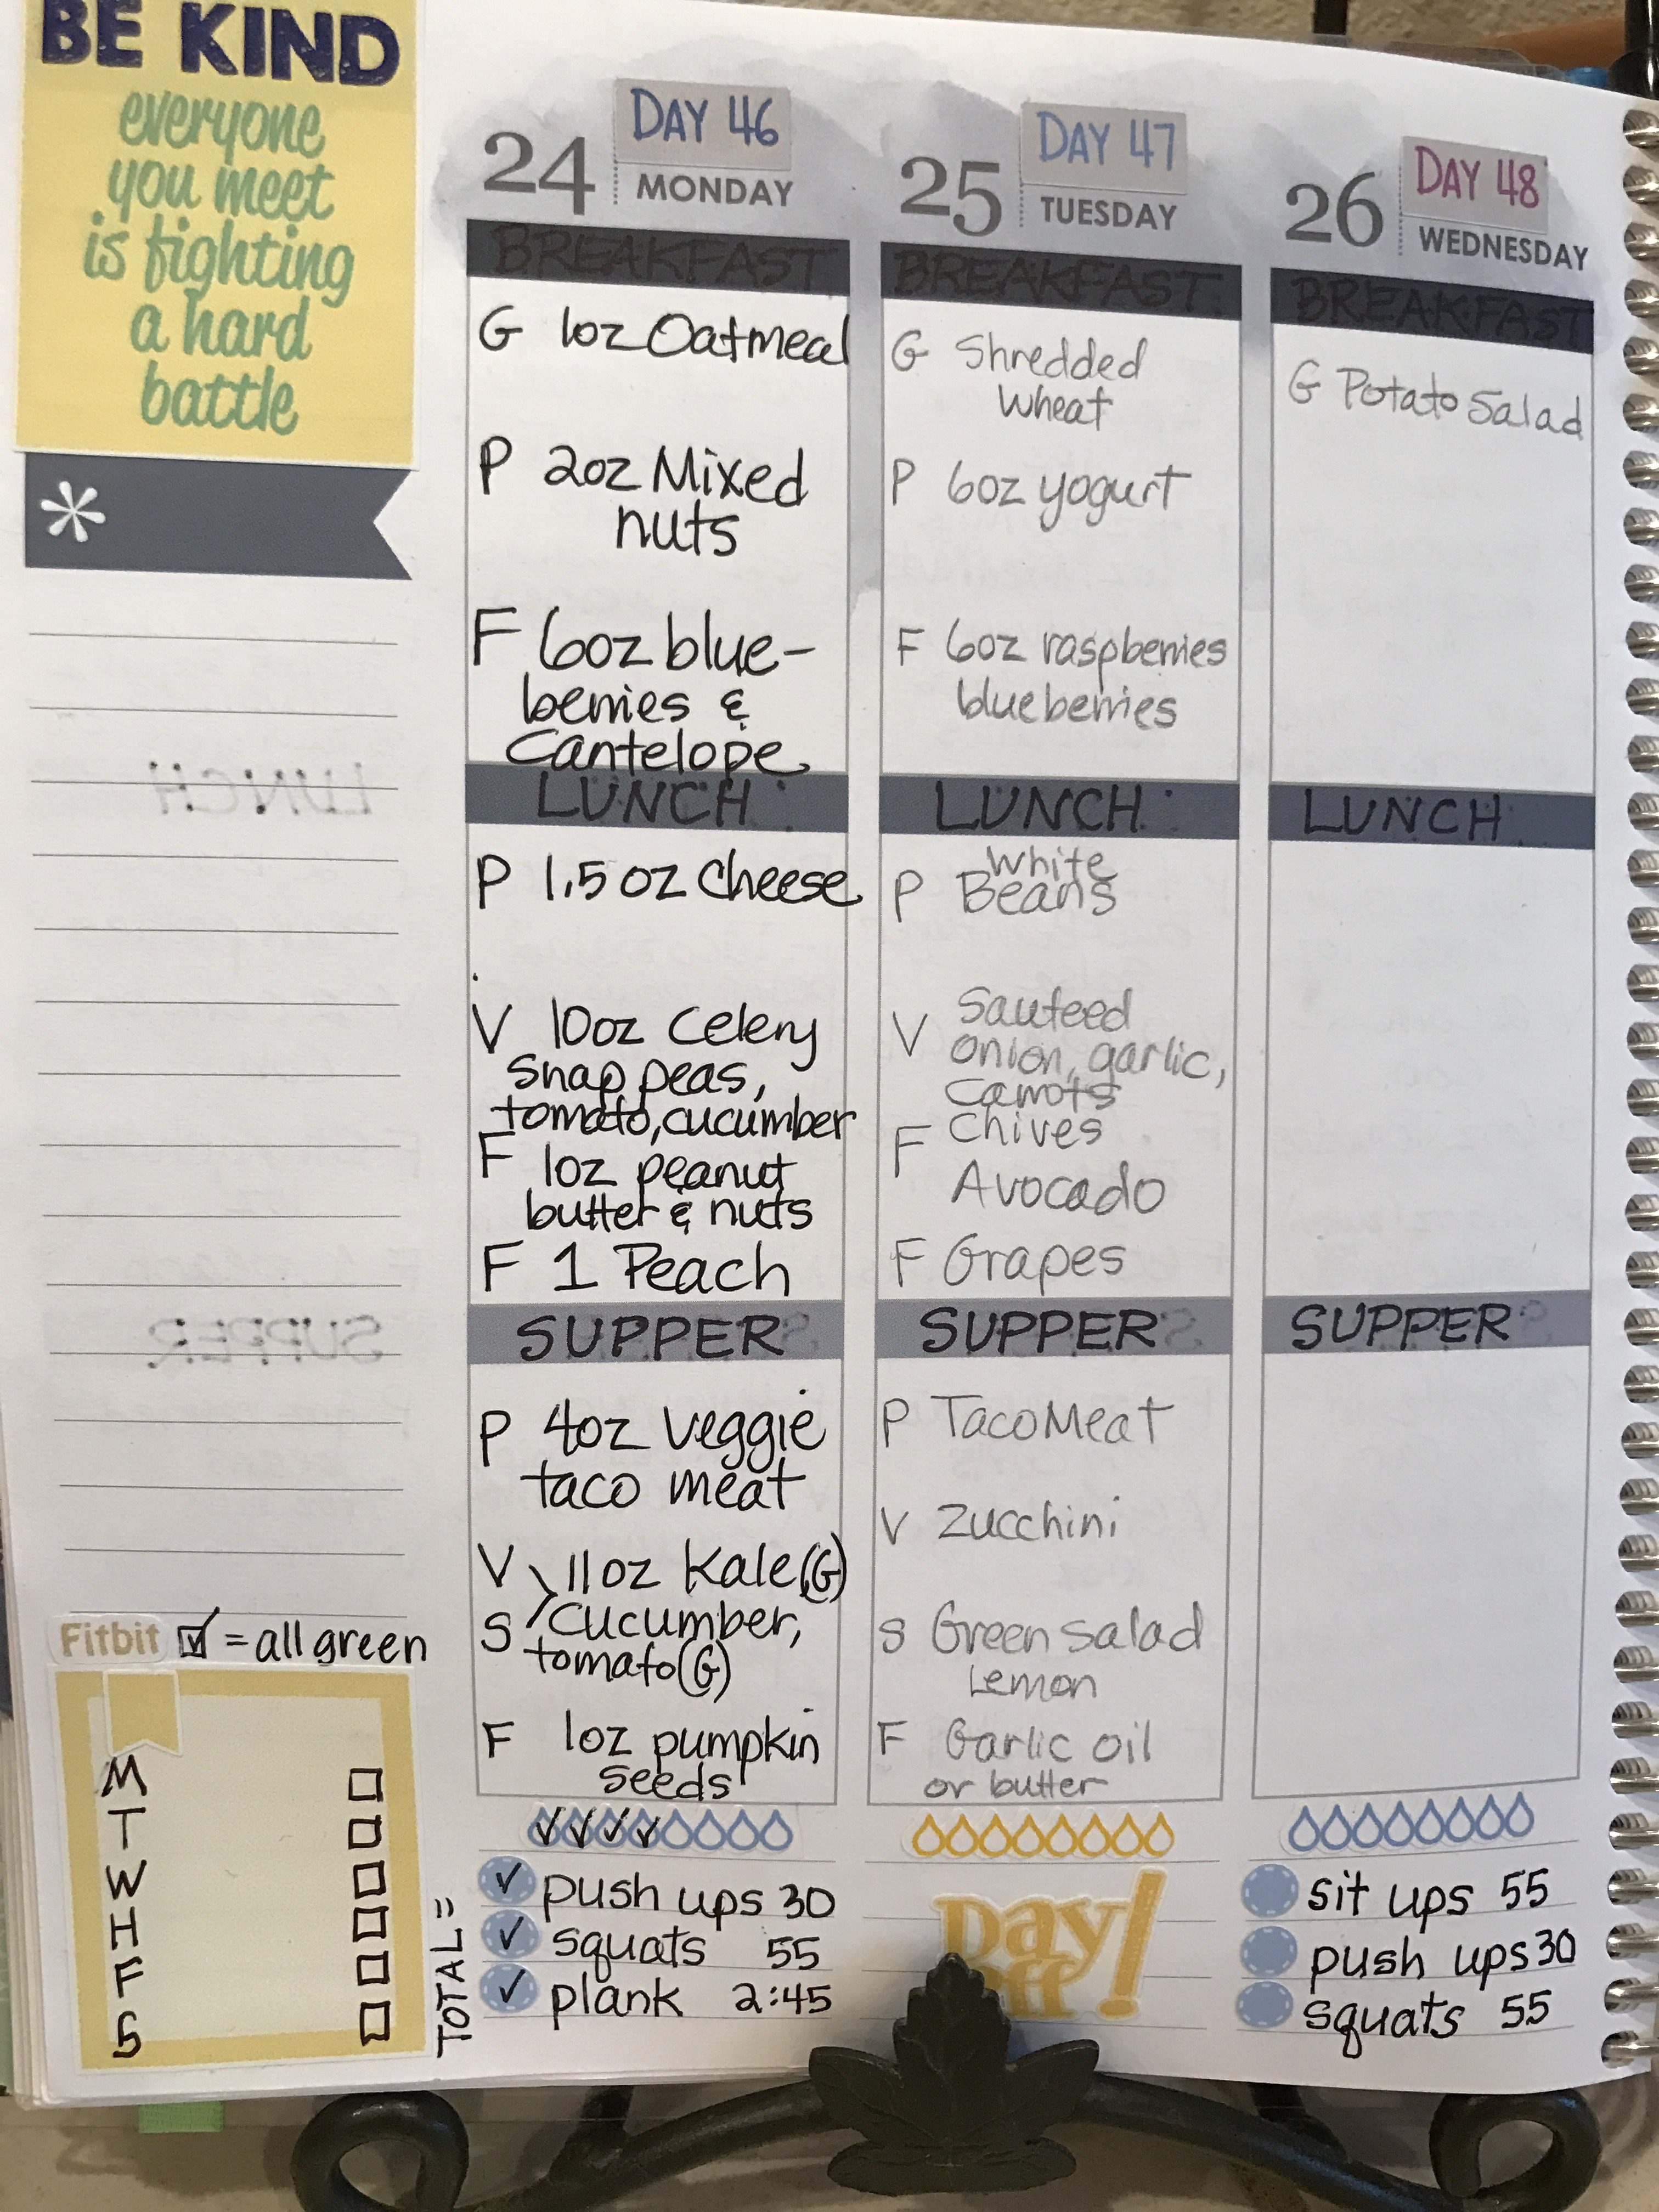 BE KIND
everyone
you meet
is fighting
a hard
battle
*
LUNCH
SUPPER
Fitbit ☑ = all green
M
T
W
H
F
S
TOTAL =
24 DAY 46
MONDAY
BREAKFAST
G 1oz Oatmeal
P 2oz Mixed
nuts
F 6oz blue-
berries &
Cantelope
LUNCH
P 1.5 oz Cheese
V 10oz Celery
Snap peas,
tomato, cucumber
F 1oz peanut
butter & nuts
F 1 Peach
SUPPER
P 4oz Veggie
taco meat
V 11oz Kale(G)
S Cucumber,
tomato(G)
F 1oz pumpkin
seeds
push ups 30
squats 55
plank 2:45
25 DAY 47
TUESDAY
BREAKFAST
G Shredded
Wheat
P 6oz yogurt
F 6oz raspberries
blueberries
LUNCH
White
P Beans
Sauteed
V onion, garlic,
Carrots
Chives
F Avocado
F Grapes
SUPPER
P Taco Meat
V Zucchini
S Green Salad
Lemon
F Garlic oil
or butter
Day
Off!
26 DAY 48
WEDNESDAY
BREAKFAST
G Potato Salad
LUNCH
SUPPER
sit ups 55
push ups 30
squats 55